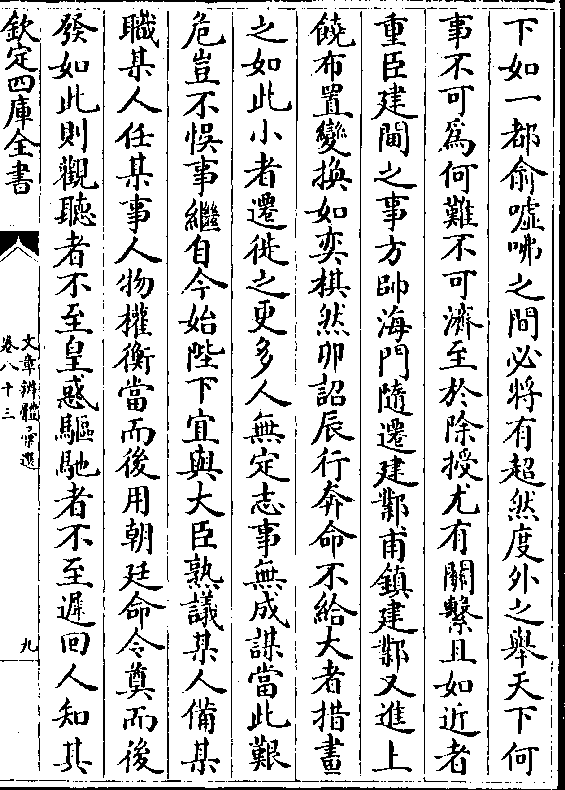 下如一都俞噓咈之間必將有超然度外之舉天下何
事不可爲何難不可濟至於除授尤有關繫且如近者
重臣建閫之事方帥海門隨遷建鄴甫鎮建鄴又進上
饒布置變換如奕棋然卯詔辰行奔命不給大者措畫
之如此小者遷徙之更多人無定志事無成謀當此艱
危豈不悞事繼自今始陛下宜與大臣熟議某人備某
職某人任某事人物權衡當而後用朝廷命令奠而後
發如此則觀聽者不至皇惑驅馳者不至遲回人知其
欽定四庫全書
文章辨體彚選
卷八十三
九